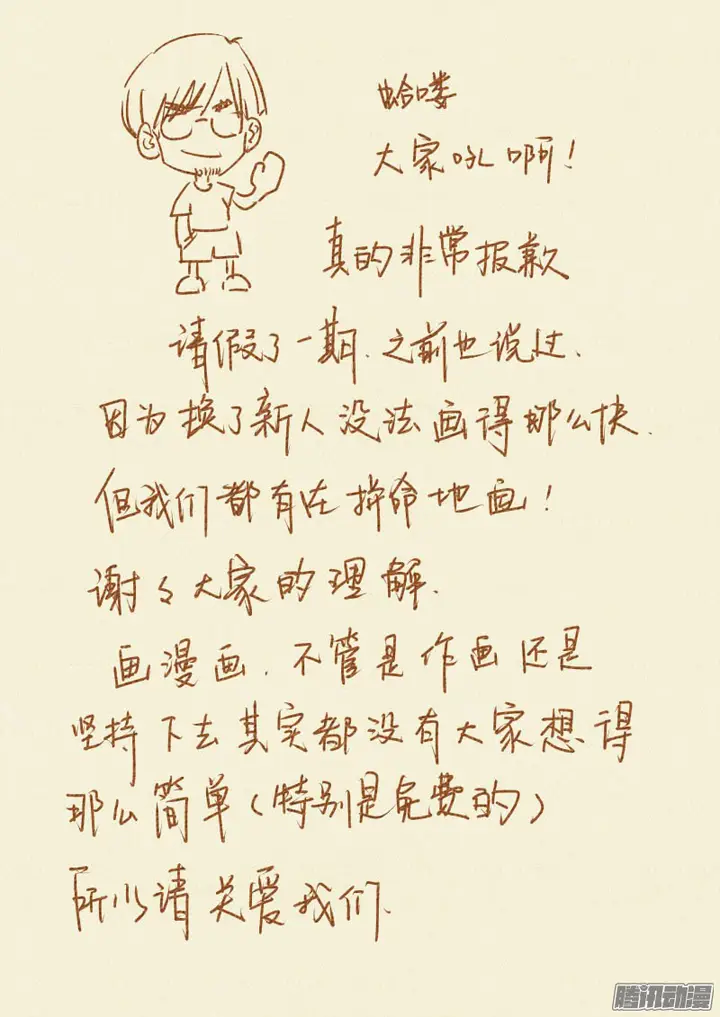 蛤喽
大家吼啊!
真的非常报歉
请假了一期.之前也说过.
因为换了新人没法画得那么快.
但我们都有在拼命地画!
谢々大家的理解.
画漫画.不管是作画还是
坚持下去其实都没有大家想得
那么简单(特别是免费的)
所以请关爱我们.
腾讯动漫